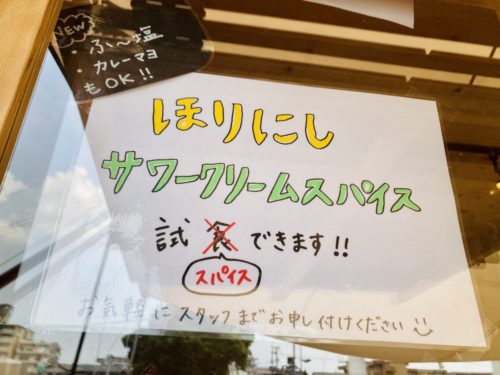 NEW
・ふ〜塩
・カレーマヨ
もOK!!
ほりにし
サワークリームスパイス
試食できます!!
スパイス
お気軽にスタッフまでお申し付けください